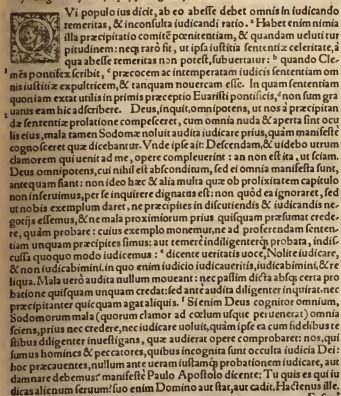 QVi populo ius dicit, ab eo abesse debet omnis in iudicando
temeritas, & inconsulta iudicandi ratio. ᵃ Habet enim nimia
illa præcipitatio comitē pœnitentiam, & quandam veluti tur
pitudinem: neq; rarò fit, ut ipsa iustitia sententiæ celeritate, à
qua abesse temeritas non potest, subuertatur: ᵇ quando Cle-
mēs pontifex scribit, ᶜ præcocem ac intemperatam iudicis sententiam om
nis iustitiæ expultricem, & tanquam nouercam esse. In quam sententiam
quoniam extat utilis in primis præceptio Euaristi pontificis, ᵈ non sum gra
uatus eam hic adscribere. Deus, inquit, omnipotens, ut nos à præcipitan
dæ sententiæ prolatione compesceret, cum omnia nuda & aperta sint ocu
lis eius, mala tamen Sodomæ noluit audita iudicare prius, quàm manifestè
cognosceret quæ dicebantur. Vnde ipse ait: Descendam, & uidebo utrum
clamorem qui uenit ad me, opere compleuerint: an non est ita, ut sciam.
Deus omnipotens, cui nihil est absconditum, sed ei omnia manifesta sunt,
antequam fiant: non ideo hæc & alia multa quæ ob prolixitatem capitulo
non inseruimus, per se inquirere dignatus est: non quòd ea ignoraret, sed
ut nobis exemplum daret, ne præcipites in discutiendis & iudicandis ne-
gotijs essemus, & ne mala proximorum prius quisquam præsumat crede-
re, quàm probare: cuius exemplo monemur, ne ad proferendam senten-
tiam unquam præcipites simus: aut temerè indiligenterq; probata, indis
cussa quoquo modo iudicemus: ᵉ dicente ueritatis uoce, Nolite iudicare,
& non iudicabimini. in quo enim iudicio iudicaueritis, iudicabimini, & re
liqua. Mala uerò audita nullum moueant: nec passim dicta absq; certa pro
batione quisquam unquam credat: sed antè audita diligenter inquirat: nec
præcipitanter quicquam agat aliquis. ᶠ Si enim Deus cognitor omnium,
Sodomorum mala (quorum clamor ad cœlum usque peruenerat) omnia
sciens, prius nec credere, nec iudicare uoluit, quàm ipse ea cum fidelibus te
stibus diligenter inuestigans, quæ audierat opere comprobaret: nos, qui
sumus homines & peccatores, quibus incognita sunt occulta iudicia Dei:
hoc præcauentes, nullum ante ueram iustamq; probationem iudicare, aut
damnare debemus: manifestè Paulo Apostolo dicente: Tu quis es qui iu
dicas alienum seruum? suo enim Domino aut stat, aut cadit. Hactenus ille.